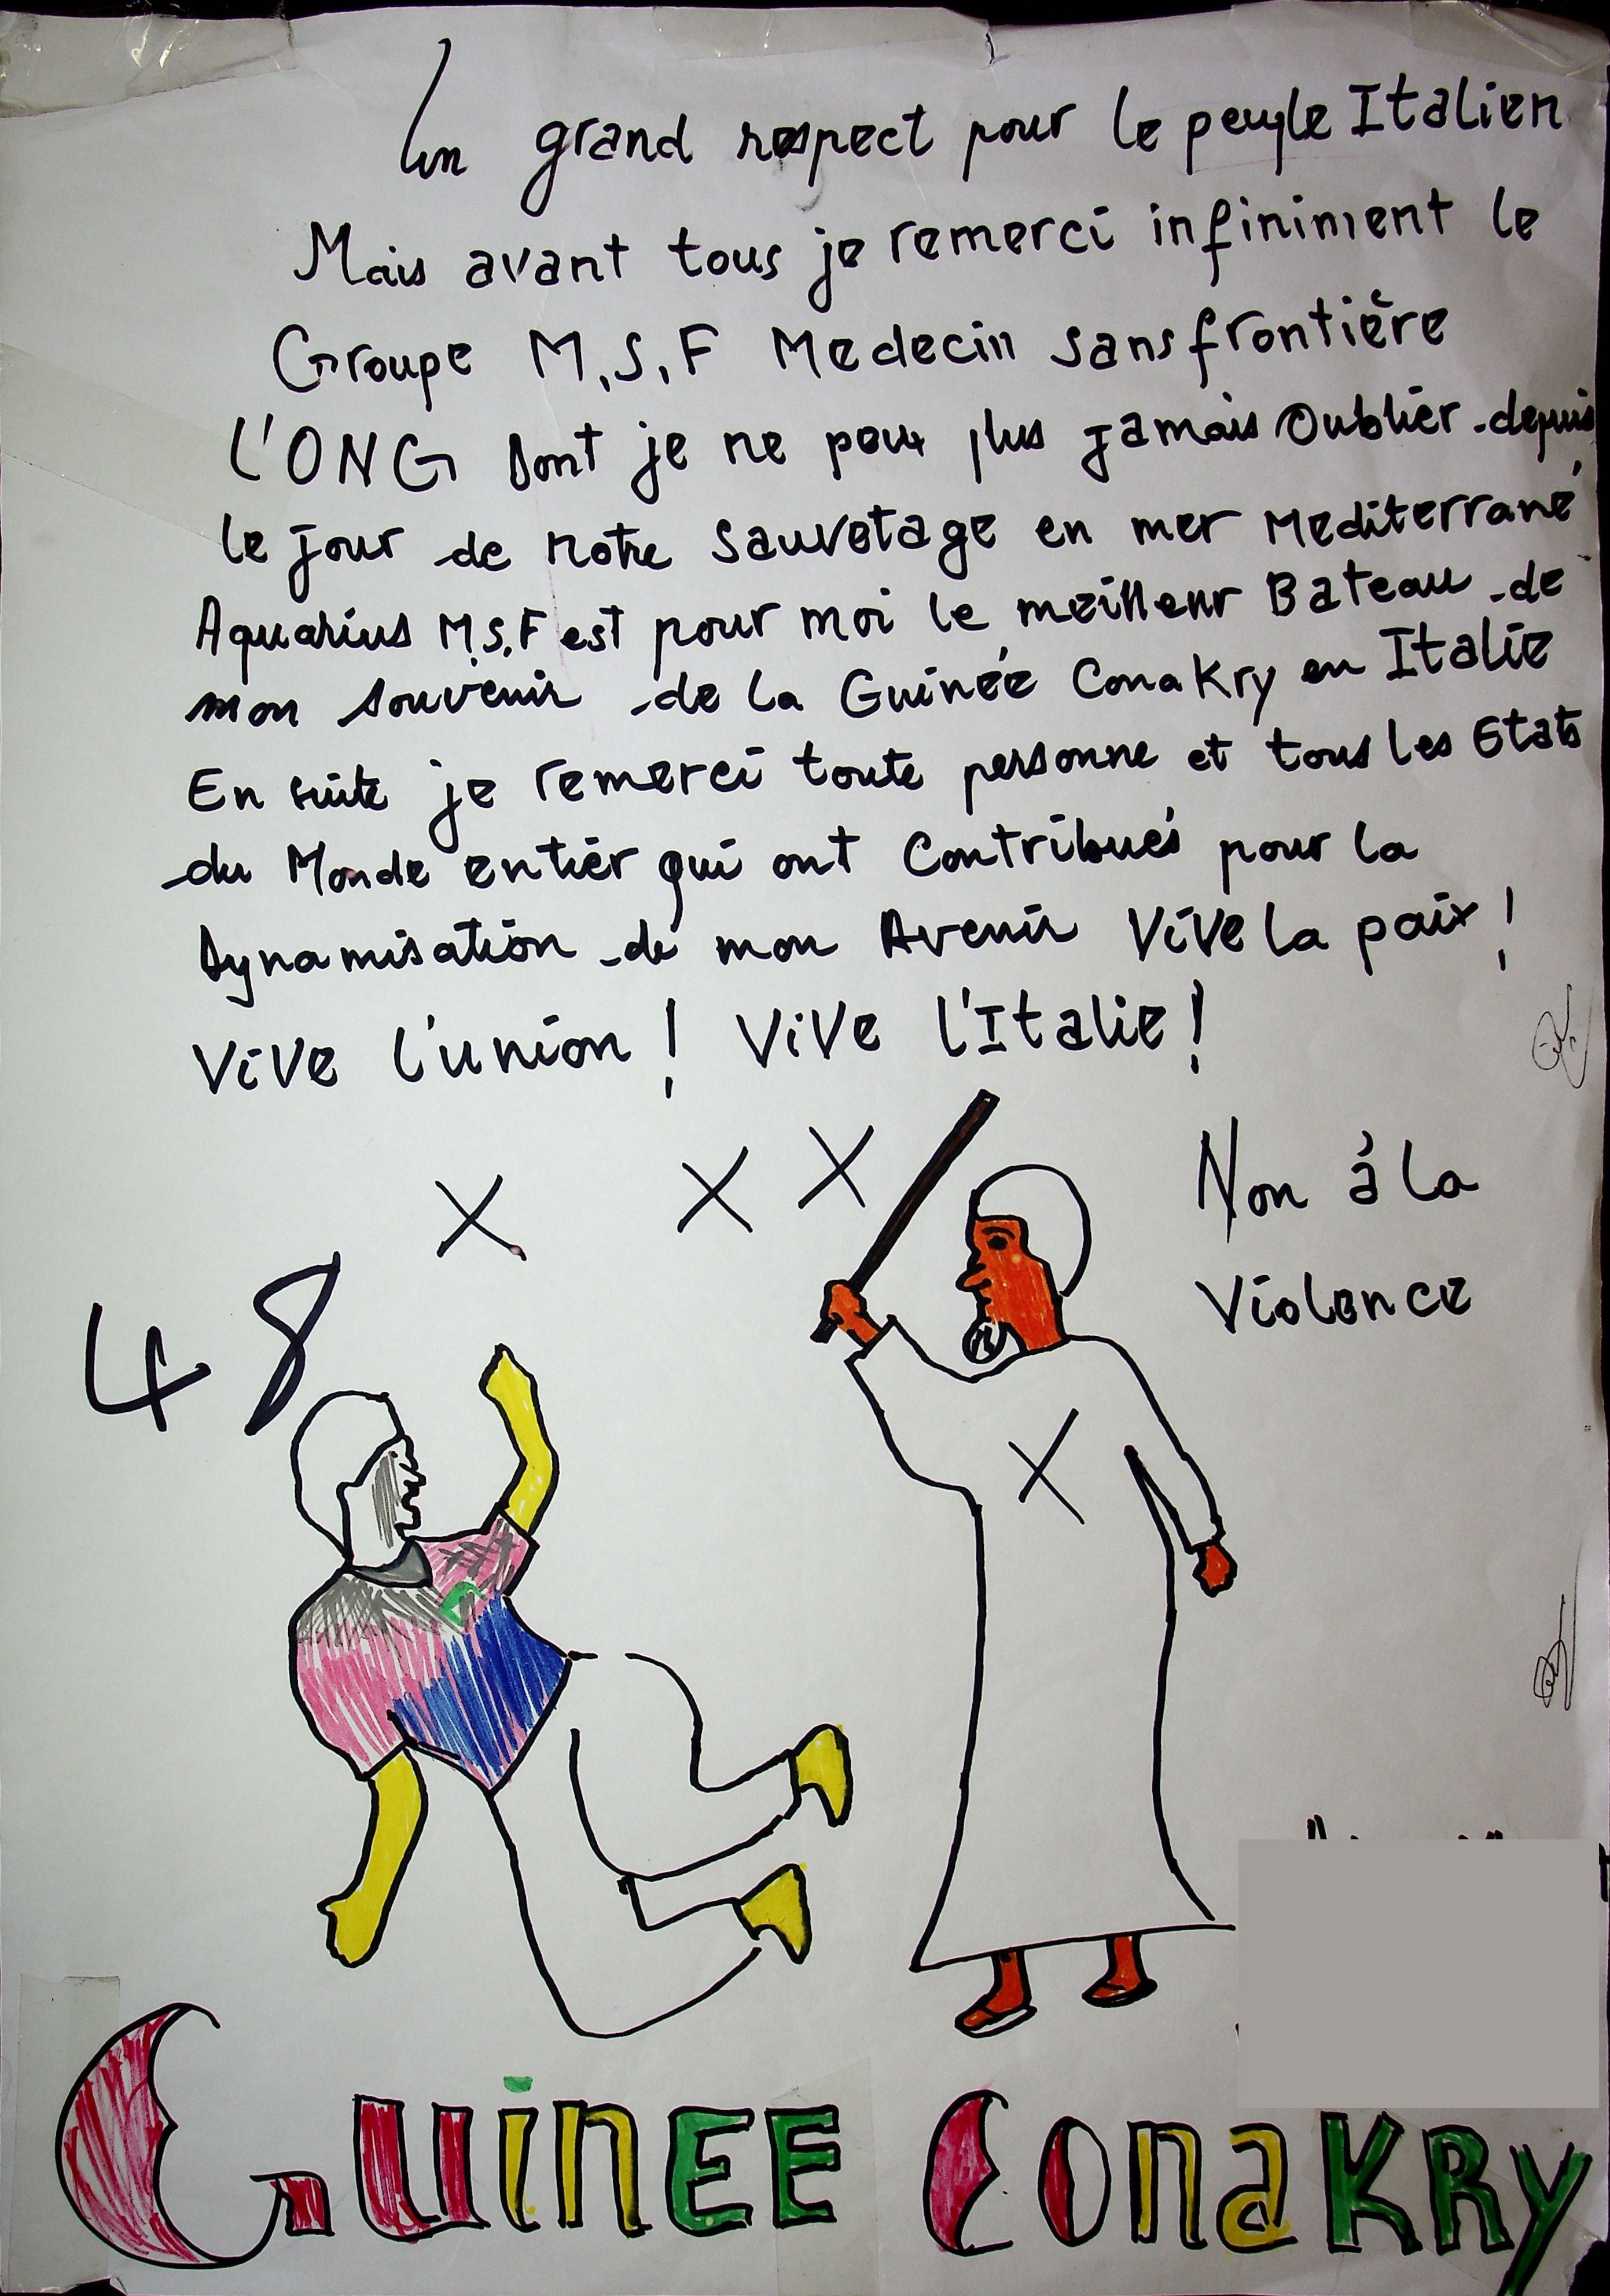 Un grand respect pour le peuple Italien
Mais avant tous je remerci infiniment le
Groupe M.S.F Medecin sans frontière
L'ONG Dont je ne peux plus jamais Oublier depuis
le jour de notre Sauvetage en mer Mediterrané
Aquarius M.S.F est pour moi le meilleur Bateau de
mon souvenir de la Guinée Conakry en Italie
En suite je remerci toute personne et tous les Etats
du Monde entier qui ont Contribués pour la
Dynamisation de mon Avenir Vive la paix !
Vive l'union ! Vive l'Italie !
X X X
Non à la
Violence
48
X
GuinEE ConaKRy